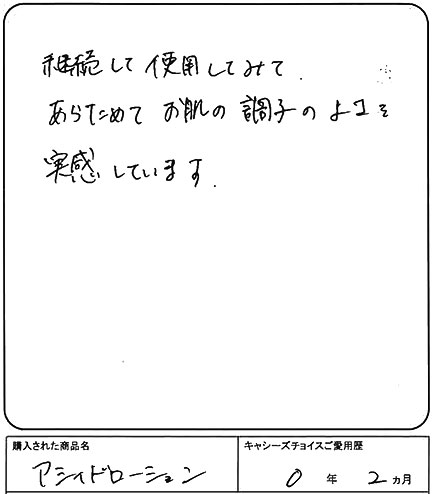 継続して使用してみて.
あらためてお肌の調子のよさを
実感しています.
購入された商品名
キャシーズチョイスご愛用歴
アシィドローション
0年2ヵ月